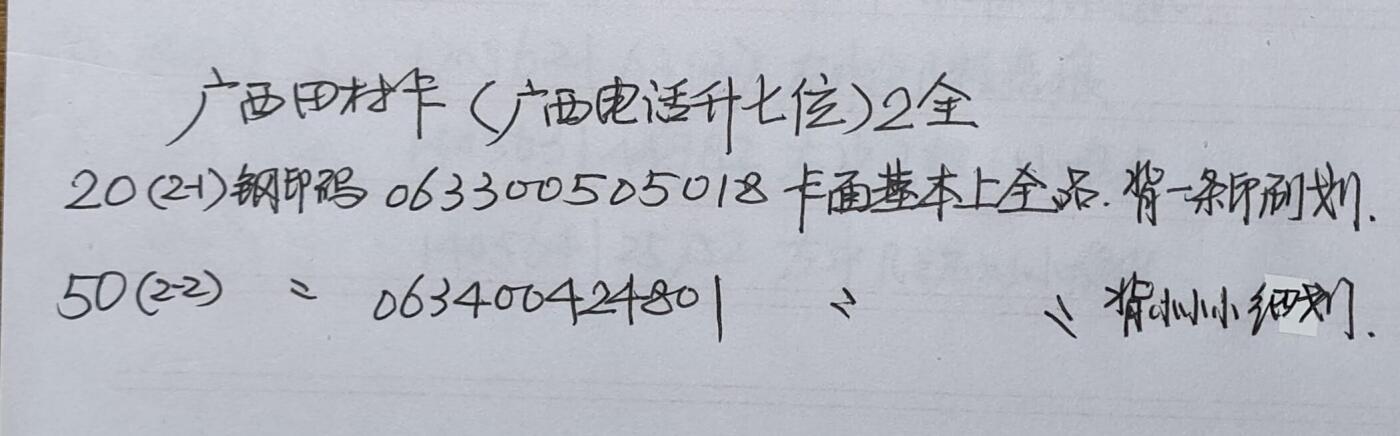 广西田村卡(广西电话升七位)2全
20(2-1)钢印码 063300505018 卡面基本上全品.背一条印刷划.
50(2-2) 〃 063400424801 〃 〃 背小小小细划.